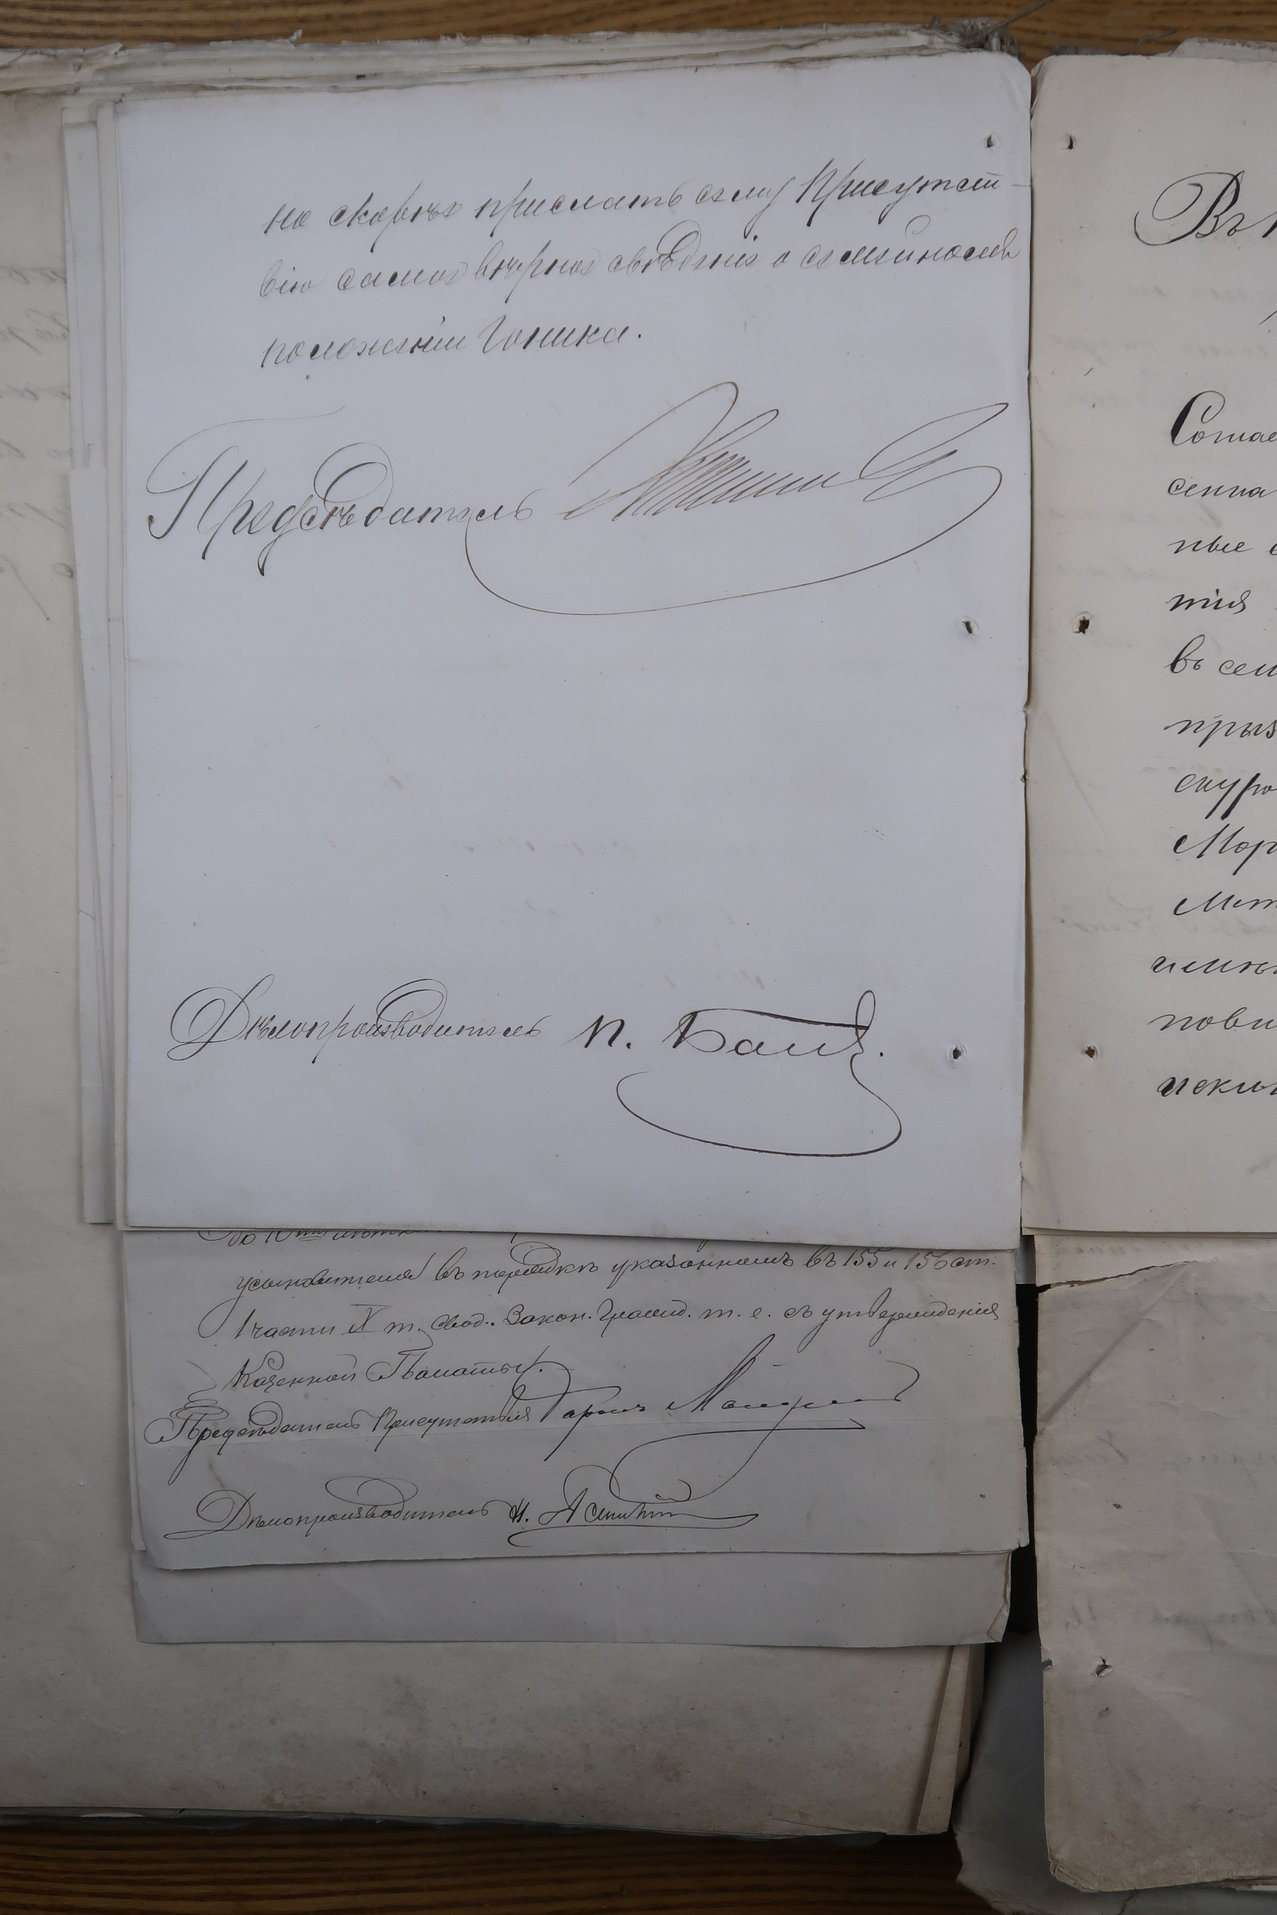 но скорѣе прислать сему Присутст-
вію самое вѣрное свѣдѣніе о семейномъ
положеніи Гоника.
Предсѣдатель
Дѣлопроизводитель П. Балц.
усыновителя въ порядкѣ указанномъ въ 155 и 156 ст.
1 части X т. Свод. Закон. Гражд. т. е. съ утвержденія
Казенной Палаты.
Предсѣдатель Присутствія Баронъ
Дѣлопроизводитель
Въ
Согла
сенна
ные
тія
въ сем
приз
скуро
Мор
Мет
имѣ
пови
исклю